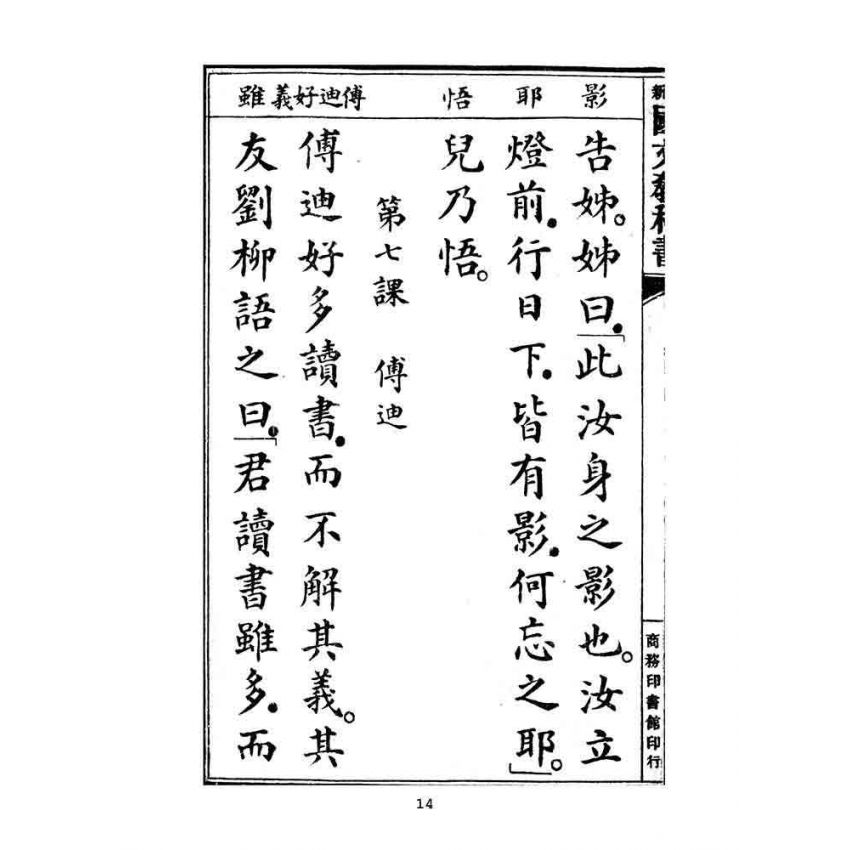 新國文教科書
商務印書館印行
影
耶
悟
傅迪好義雖
告姊。姊曰.「此汝身之影也。汝立
燈前.行日下.皆有影.何忘之耶」。
兒乃悟。
第七課 傅迪
傅迪好多讀書.而不解其義。其
友劉柳語之曰.「君讀書雖多.而
14